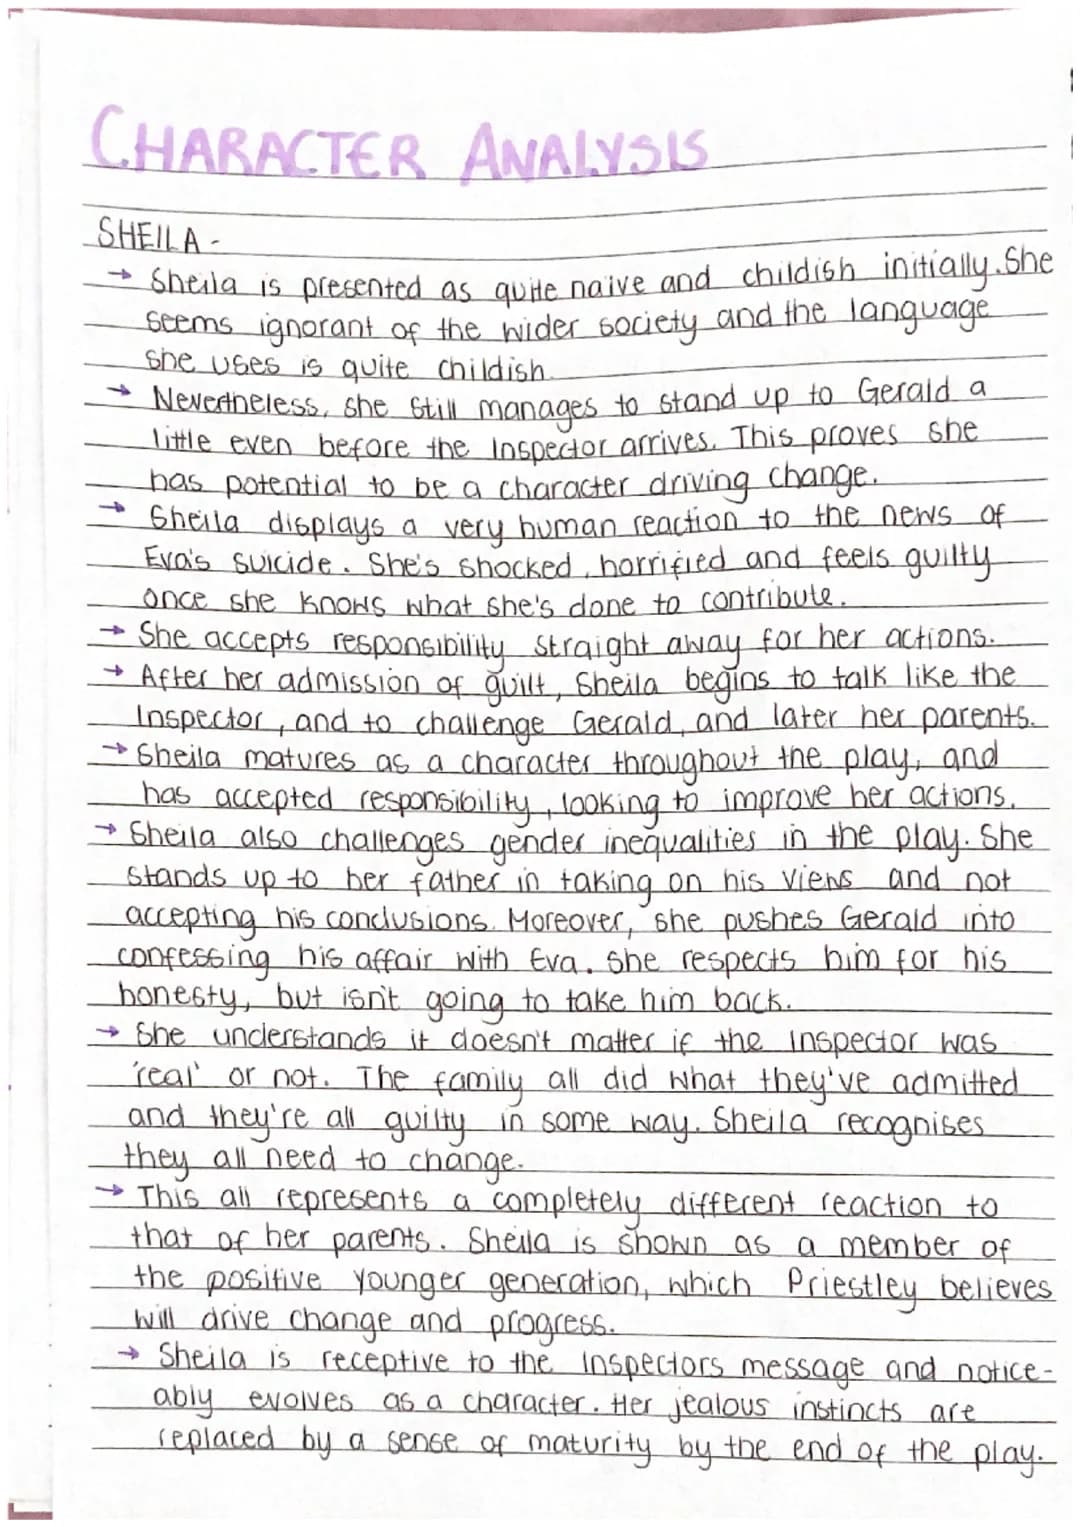 CHARACTER ANALYSIS
SHEILA -
→ Sheila is presented as quite naive and childish initially. She
seems ignorant of the wider society and the language
she uses is quite childish.
→ Nevertheless, she still manages to stand up to Gerald a
little even before the Inspector arrives. This proves she
has potential to be a character driving change.
→ Sheila displays a very human reaction to the news of
Eva's suicide. She's shocked, horrified and feels guilty
once she knows what she's done to contribute.
→ She accepts responsibility straight away for her actions.
→ After her admission of guilt, Sheila begins to talk like the
Inspector, and to challenge Gerald, and later her parents.
→ Sheila matures as a character throughout the play, and
has accepted responsibility, looking to improve her actions.
→ Sheila also challenges gender inequalities in the play. She
stands up to her father in taking on his views and not
accepting his conclusions. Moreover, she pushes Gerald into
confessing his affair with Eva. She respects him for his
honesty, but isn't going to take him back.
→ She understands it doesn't matter if the Inspector was
'real' or not. The family all did what they've admitted
and they're all guilty in some way. Sheila recognises
they all need to change.
→ This all represents a completely different reaction to
that of her parents. Sheila is shown as a member of
the positive younger generation, which Priestley believes
will drive change and progress.
→ Sheila is receptive to the Inspectors message and notice-
ably evolves as a character. Her jealous instincts are
replaced by a sense of maturity by the end of the play.